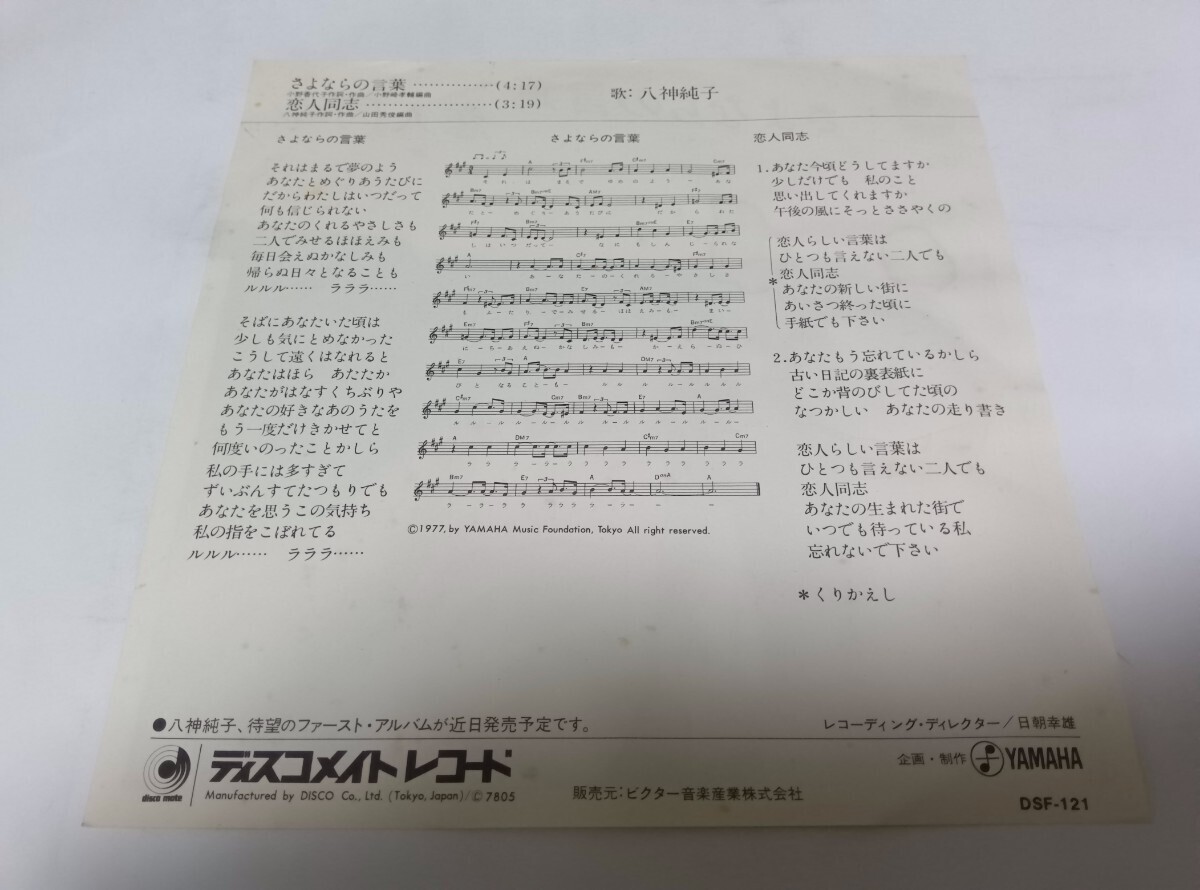 さよならの言葉 ……………(4:17)
小野香代子作詞・作曲／小野崎孝輔編曲
恋人同志 ……………………(3:19)
八神純子作詞・作曲／山田秀俊編曲
歌: 八神純子
さよならの言葉
それはまるで夢のよう
あなたとめぐりあうたびに
だからわたしはいつだって
何も信じられない
あなたのくれるやさしさも
二人でみせるほほえみも
毎日会えぬかなしみも
帰らぬ日々となることも
ルルル…… ラララ……
そばにあなたいた頃は
少しも気にとめなかった
こうして遠くはなれると
あなたはほら あたたか
あなたがはなすくちぶりや
あなたの好きなあのうたを
もう一度だけきかせてと
何度いのったことかしら
私の手には多すぎて
ずいぶんすてたつもりでも
あなたを思うこの気持ち
私の指をこぼれてる
ルルル…… ラララ……
さよならの言葉
©1977, by YAMAHA Music Foundation, Tokyo All right reserved.
恋人同志
1. あなた今頃どうしてますか
少しだけでも 私のこと
思い出してくれますか
午後の風にそっとささやくの
恋人らしい言葉は
ひとつも言えない二人でも
恋人同志
*
あなたの新しい街に
あいさつ終った頃に
手紙でも下さい
2. あなたもう忘れているかしら
古い日記の裏表紙に
どこか背のびしてた頃の
なつかしい あなたの走り書き
恋人らしい言葉は
ひとつも言えない二人でも
恋人同志
あなたの生まれた街で
いつでも待っている私
忘れないで下さい
*くりかえし
●八神純子、待望のファースト・アルバムが近日発売予定です。
レコーディング・ディレクター／日朝幸雄
disco mate
ディスコメイトレコード
Manufactured by DISCO Co., Ltd. (Tokyo, Japan)/Ⓒ7805
販売元:ビクター音楽産業株式会社
企画・制作 YAMAHA
DSF-121